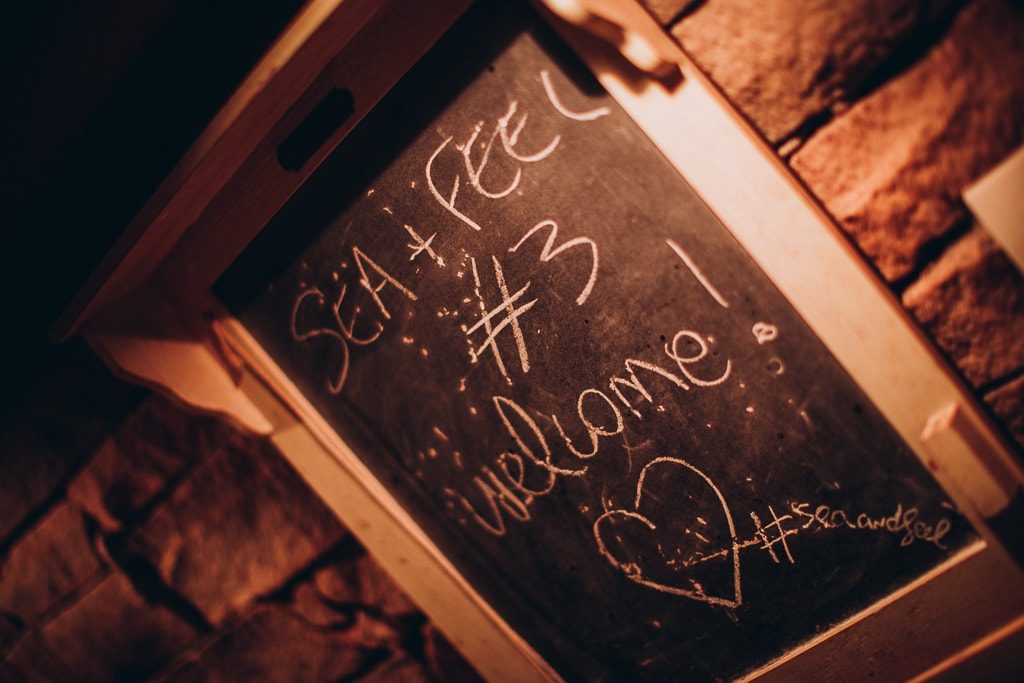 SEA + FEEL
#3
welcome!
#seaandfeel